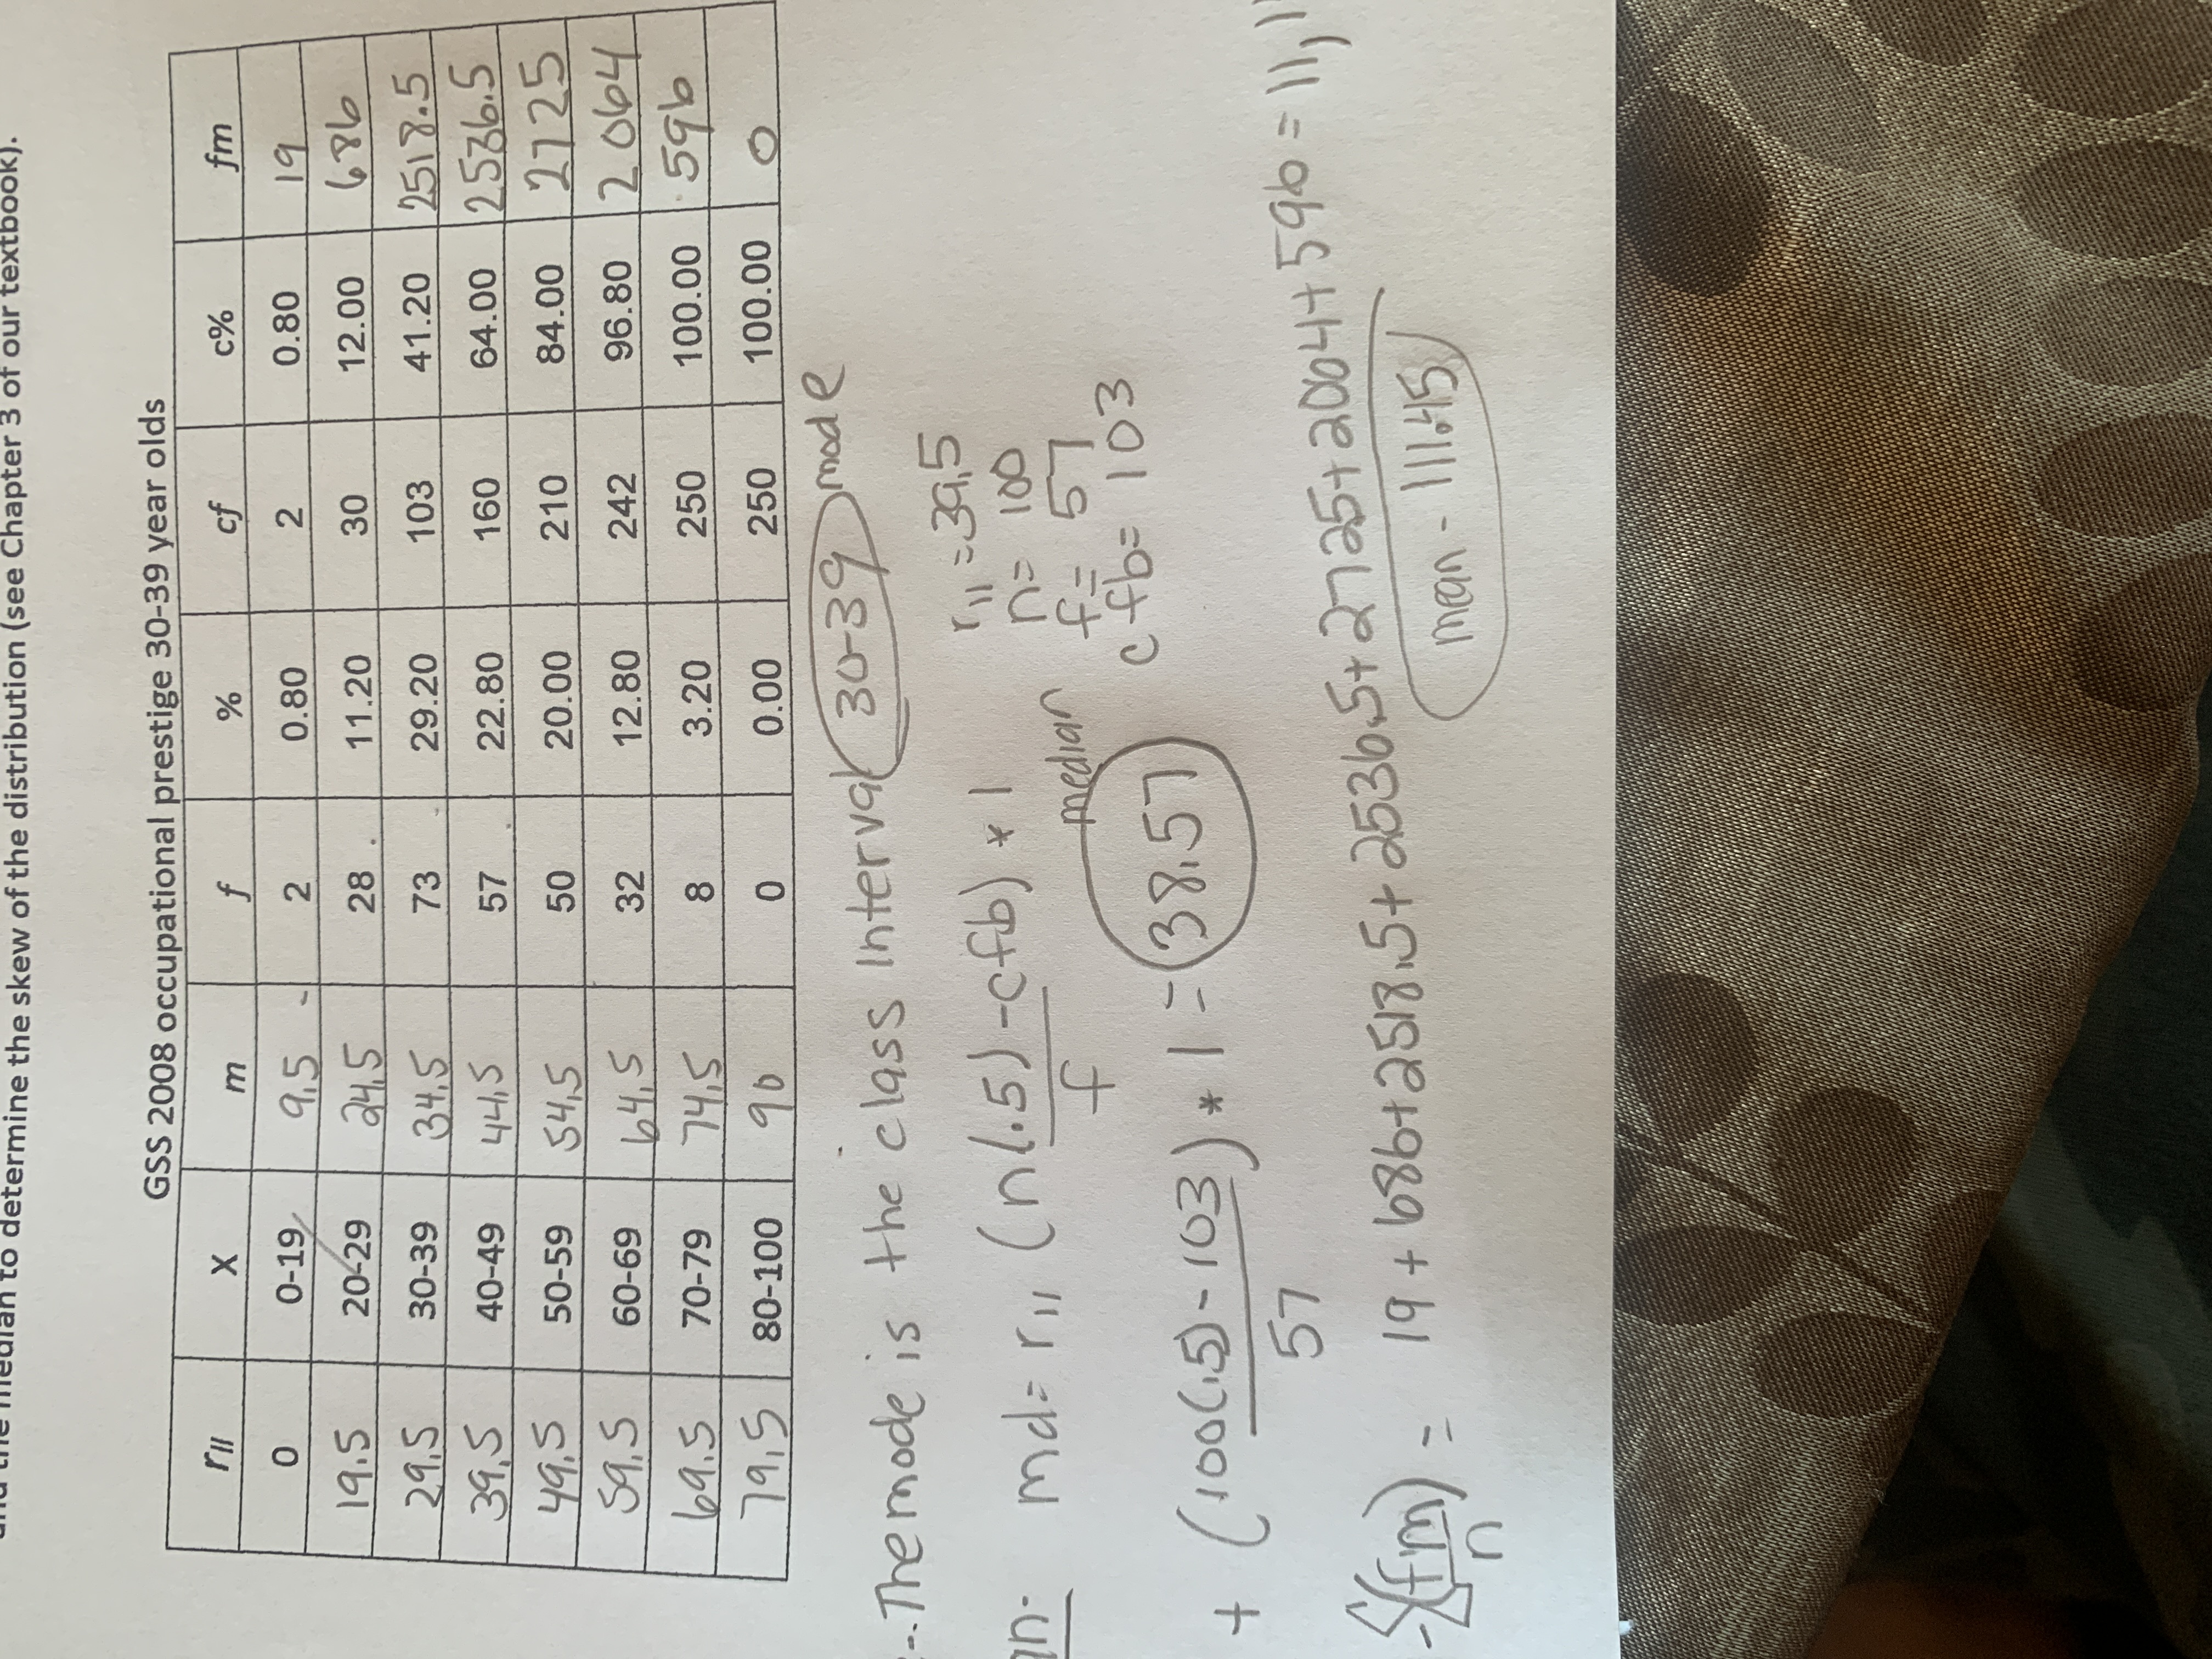 and the median to determine the skew of the distribution (see Chapter 3 of our textbook).
GSS 2008 occupational prestige 30-39 year olds
rll X m f % cf c% fm
0 0-19 9.5 2 0.80 2 0.80 19
19.5 20-29 24.5 28 11.20 30 12.00 686
29.5 30-39 34.5 73 29.20 103 41.20 2518.5
39.5 40-49 44.5 57 22.80 160 64.00 2536.5
49.5 50-59 54.5 50 20.00 210 84.00 2725
59.5 60-69 64.5 32 12.80 242 96.80 2064
69.5 70-79 74.5 8 3.20 250 100.00 596
79.5 80-100 90 0 0.00 250 100.00 0
The mode is the class interval 30-39 mode
md= rll (n(.5)-cfb) * 1
f
rll = 39.5
n= 100
f= 57
cfb= 103
+ (100(.5)-103) * 1 = 38.57 median
57
Σ(fm) = 19 + 686 + 2518.5 + 2536.5 + 2725 + 2064 + 596 = 11,1
n
mean - 111.45